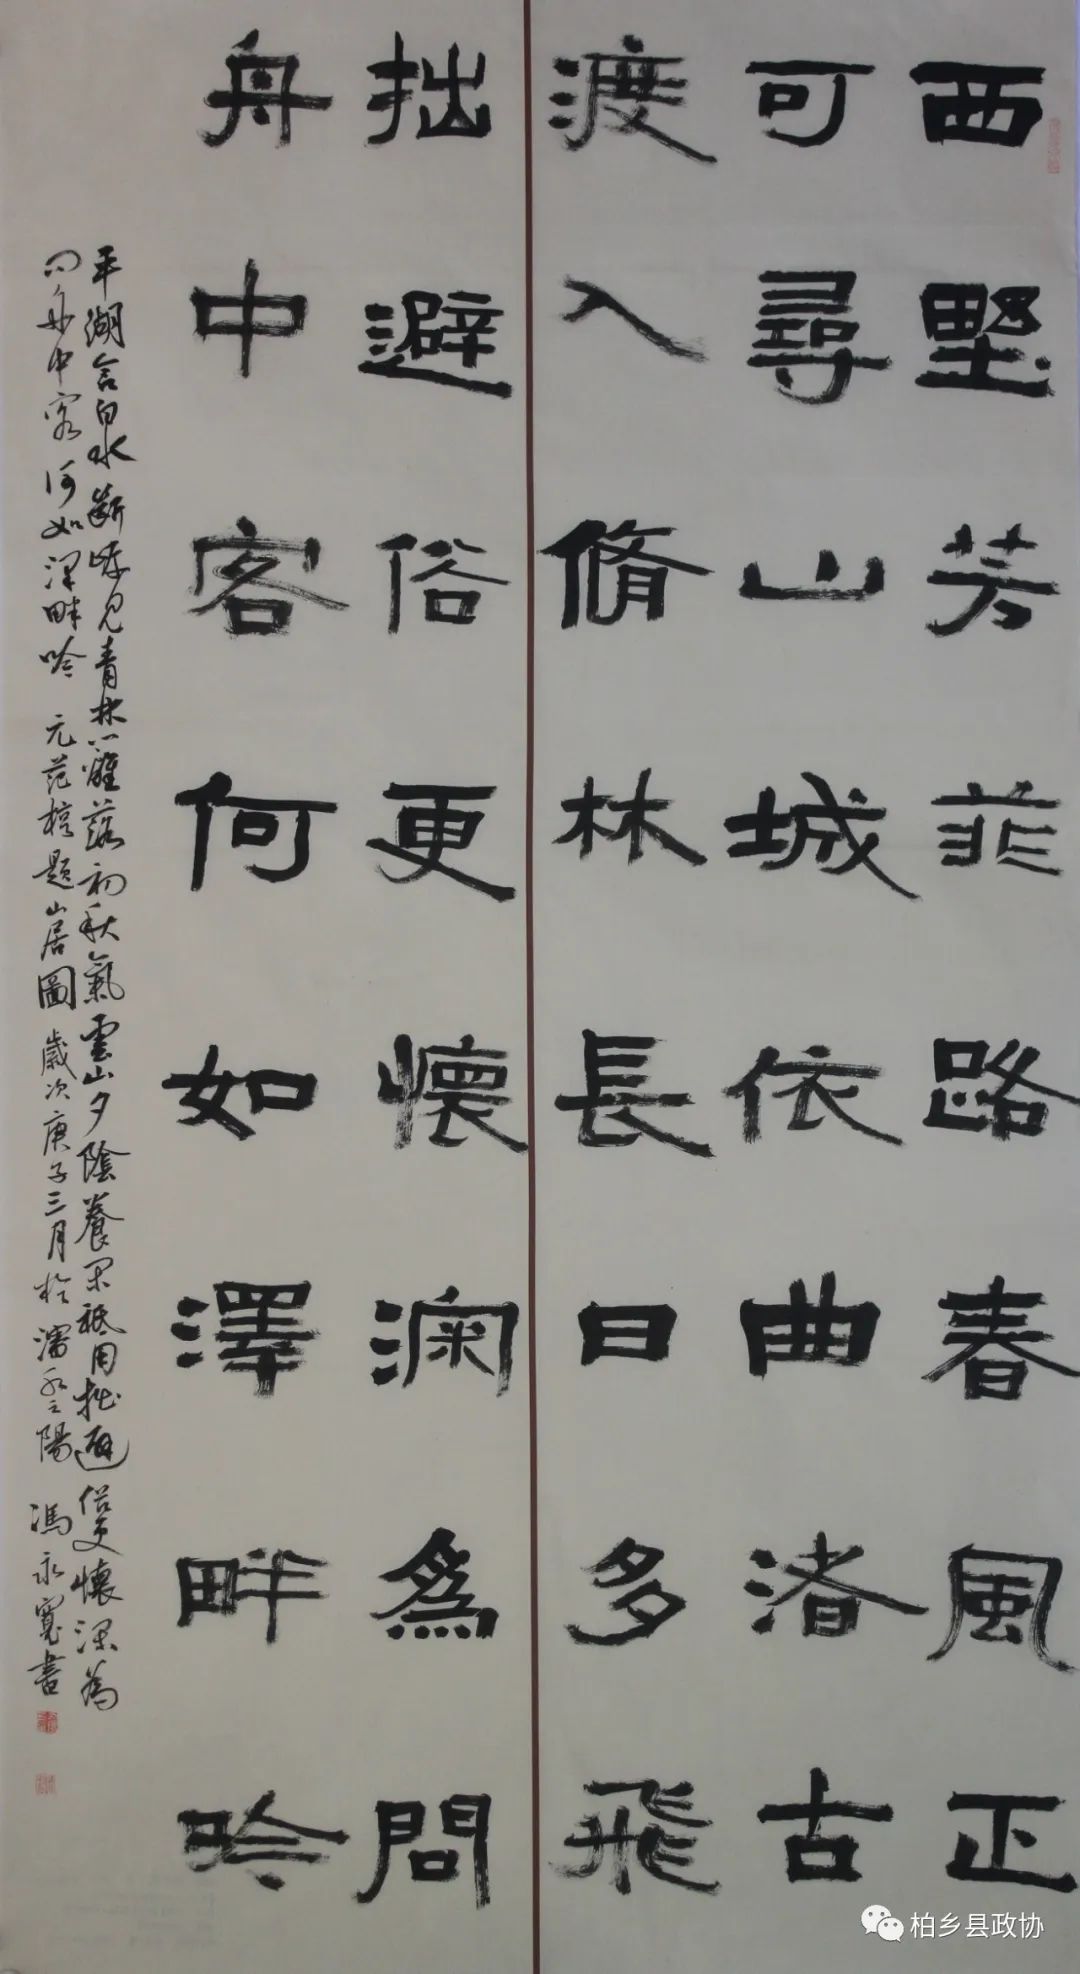 西墅芳菲路春風正
可尋山城依曲渚古
渡入脩林長日多飛
拙避俗更懷為問
舟中客何如澤畔吟
平湖含白水斷峰見青林籬落初秋氣雲山夕陰養閑祗用拙避俗更懷深為
問舟中客何如澤畔吟 元范梈題山居圖 歲次庚子三月於瀋水之陽 馮永寬書
柏乡县政协